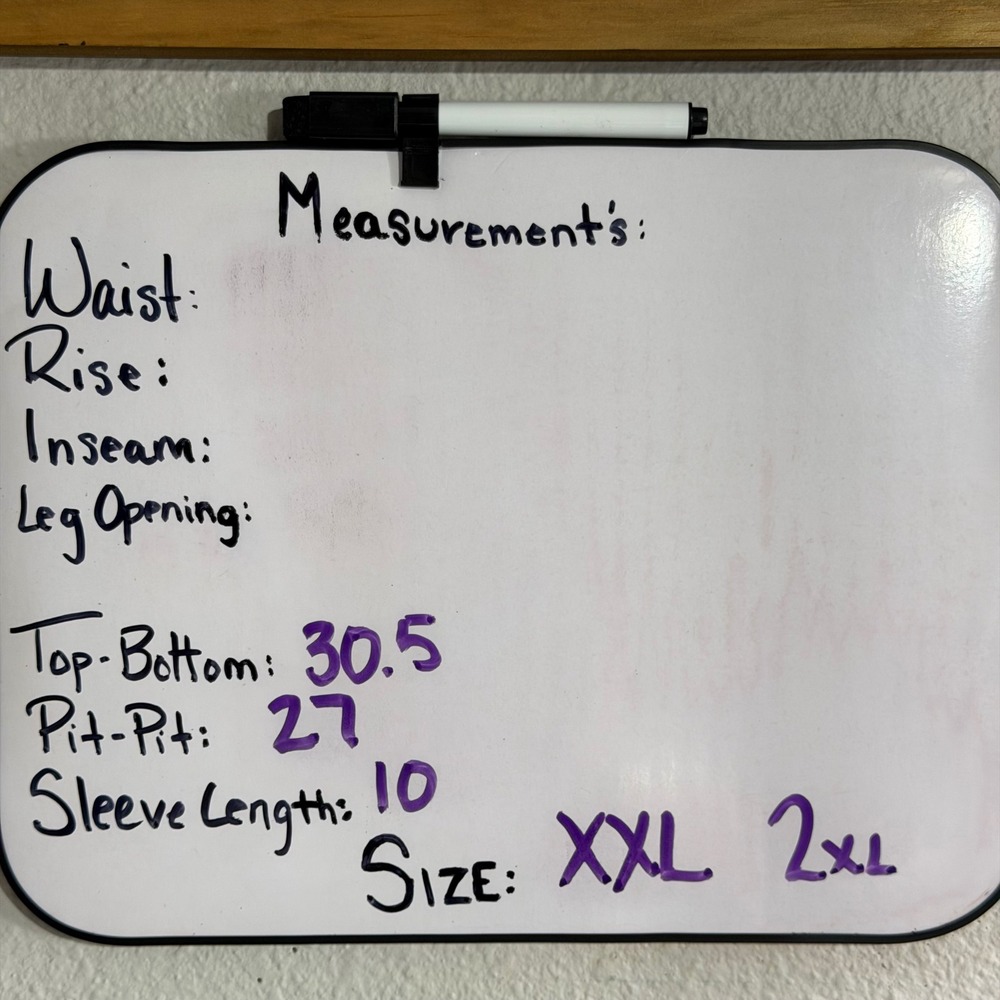 Measurement's:
Waist:
Rise:
Inseam:
Leg Opening:
Top-Bottom: 30.5
Pit-Pit: 27
Sleeve Length: 10
Size: XXL 2XL